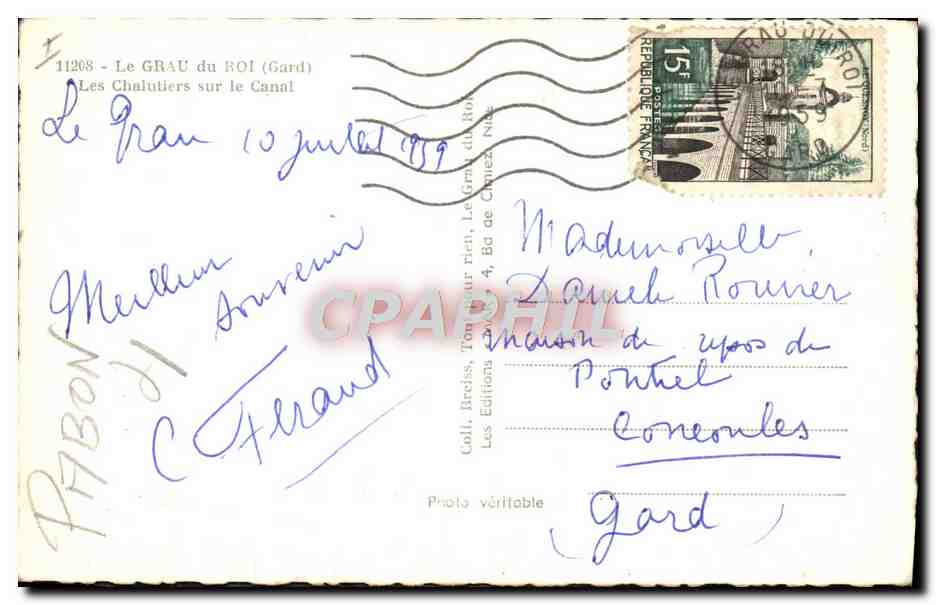 11208 - Le GRAU du ROI (Gard)
Les Chalutiers sur le Canal
Le Grau 10 juillet 1959
Meilleur
souvenir
C Feraud
PABON
21
Coll. Breiss, Tout pour rien, Le Grau du Roi
Les Editions 4, Bd de Cimiez, Nice
Photo véritable
15F
POSTES
REPUBLIQUE FRANCAISE
GRAU DU ROI
Mademoiselle
Daniele Rouvier
maison de repos de
Ponteil
Concoules
(Gard)
CPAPHIL